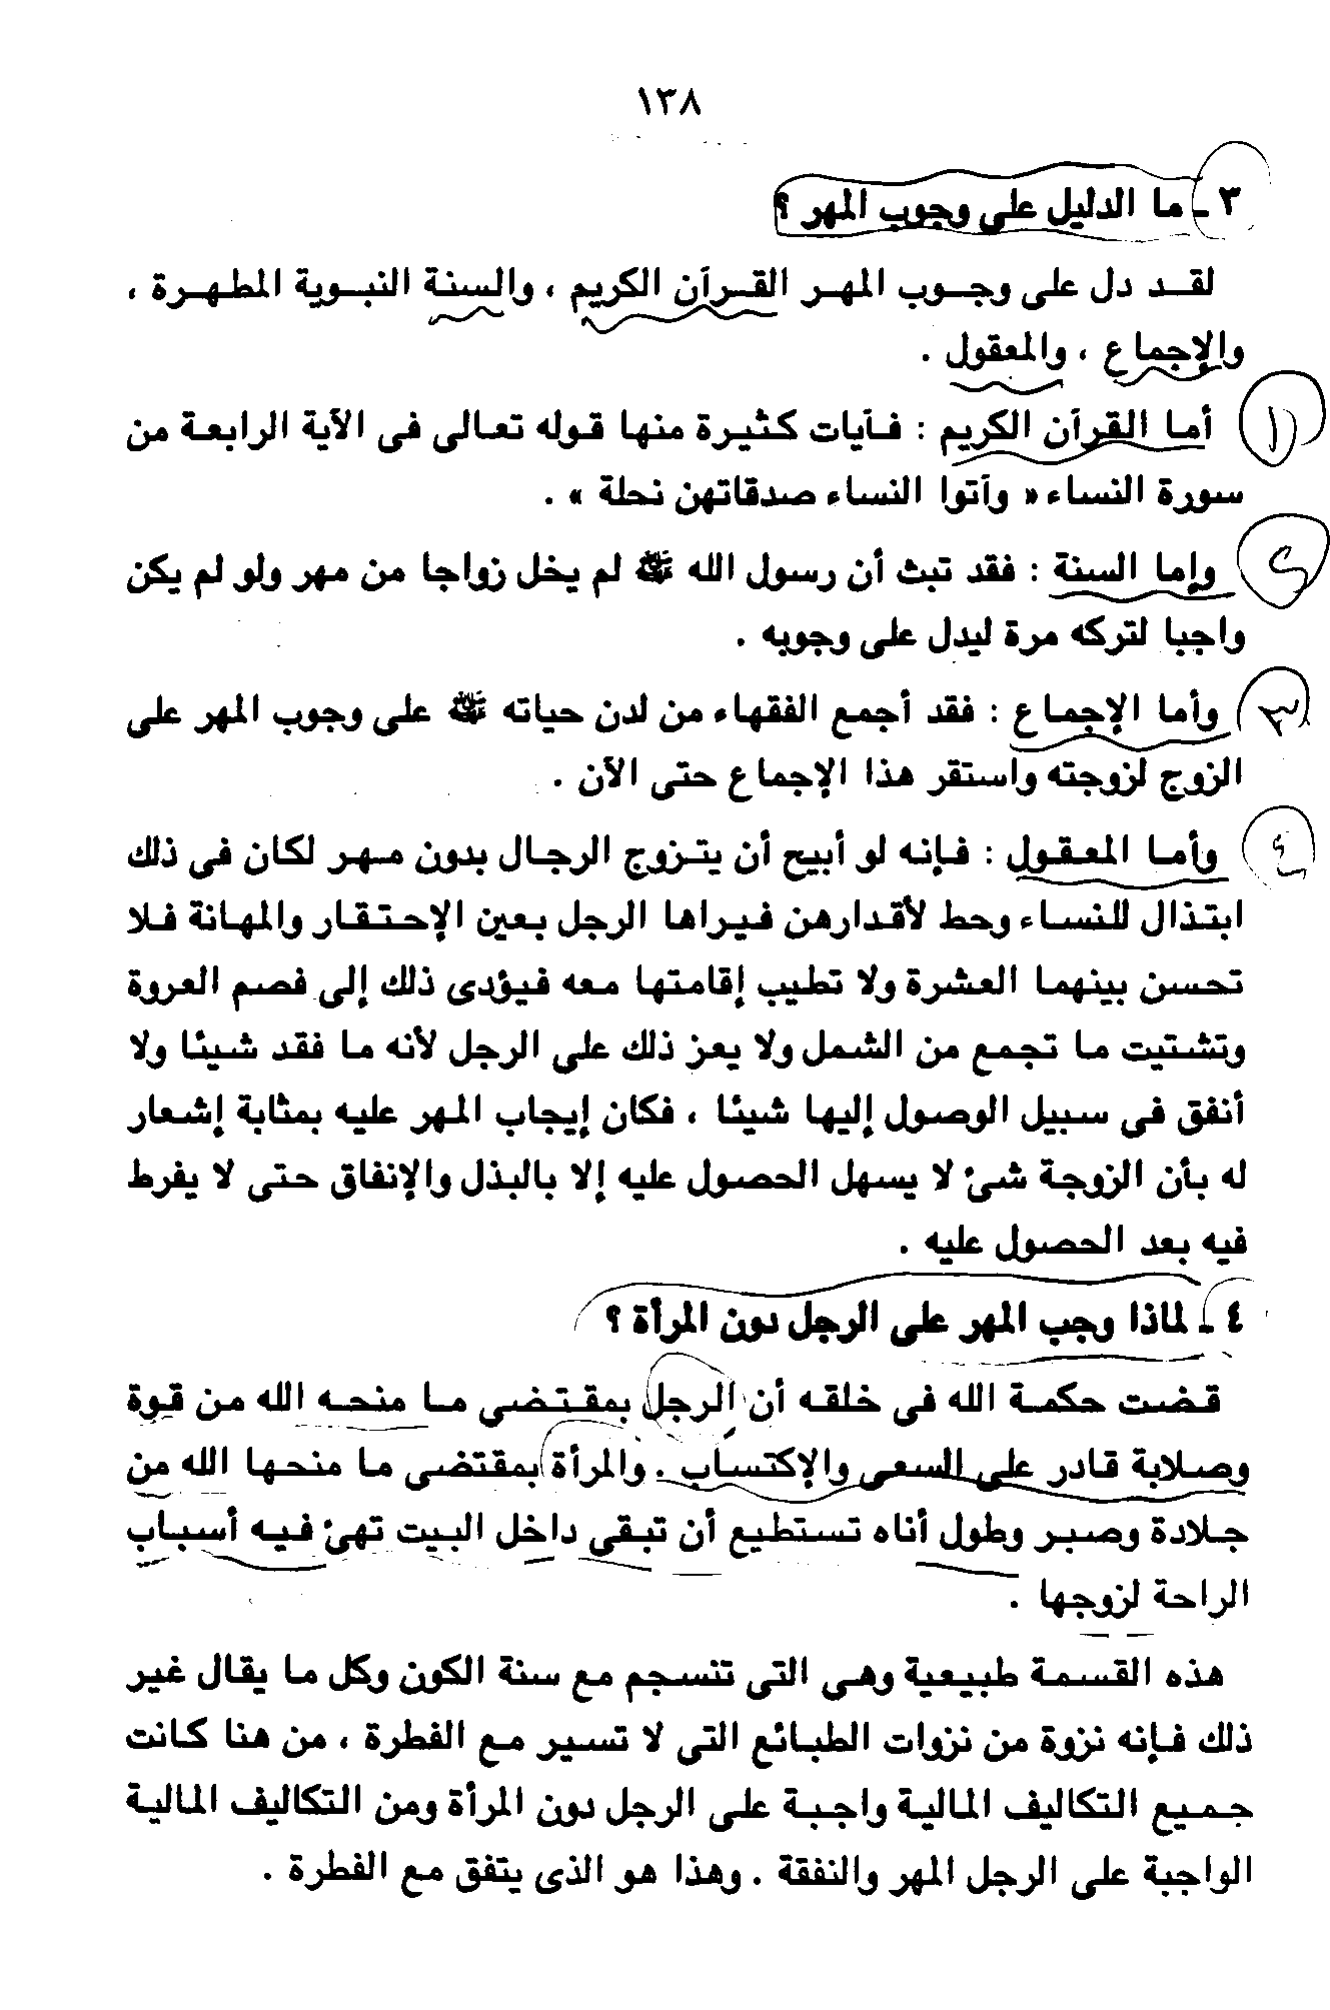 ١٣٨
٣ ـ ما الدليل على وجوب المهر ؟
لقد دل على وجوب المهر القرآن الكريم ، والسنة النبوية المطهرة ،
والإجماع ، والمعقول .
١
أما القرآن الكريم : فآيات كثيرة منها قوله تعالى فى الآية الرابعة من
سورة النساء « وآتوا النساء صدقاتهن نحلة » .
٢
وإما السنة : فقد تبث أن رسول الله ﷺ لم يخل زواجا من مهر ولو لم يكن
واجبا لتركه مرة ليدل على وجوبه .
٣
وأما الإجماع : فقد أجمع الفقهاء من لدن حياته ﷺ على وجوب المهر على
الزوج لزوجته واستقر هذا الإجماع حتى الآن .
٤
وأما المعقول : فإنه لو أبيح أن يتزوج الرجال بدون مهر لكان فى ذلك
ابتذال للنساء وحط لأقدارهن فيراها الرجل بعين الإحتقار والمهانة فلا
تحسن بينهما العشرة ولا تطيب إقامتها معه فيؤدى ذلك إلى فصم العروة
وتشتيت ما تجمع من الشمل ولا يعز ذلك على الرجل لأنه ما فقد شيئا ولا
أنفق فى سبيل الوصول إليها شيئا ، فكان إيجاب المهر عليه بمثابة إشعار
له بأن الزوجة شئ لا يسهل الحصول عليه إلا بالبذل والإنفاق حتى لا يفرط
فيه بعد الحصول عليه .
٤ ـ لماذا وجب المهر على الرجل دون المرأة ؟
قضت حكمة الله فى خلقه أن الرجل بمقتضى ما منحه الله من قوة
وصلابة قادر على السعى والإكتساب . والمرأة بمقتضى ما منحها الله من
جلادة وصبر وطول أناه تستطيع أن تبقى داخل البيت تهئ فيه أسباب
الراحة لزوجها .
هذه القسمة طبيعية وهى التى تنسجم مع سنة الكون وكل ما يقال غير
ذلك فإنه نزوة من نزوات الطبائع التى لا تسير مع الفطرة ، من هنا كانت
جميع التكاليف المالية واجبة على الرجل دون المرأة ومن التكاليف المالية
الواجبة على الرجل المهر والنفقة . وهذا هو الذى يتفق مع الفطرة .